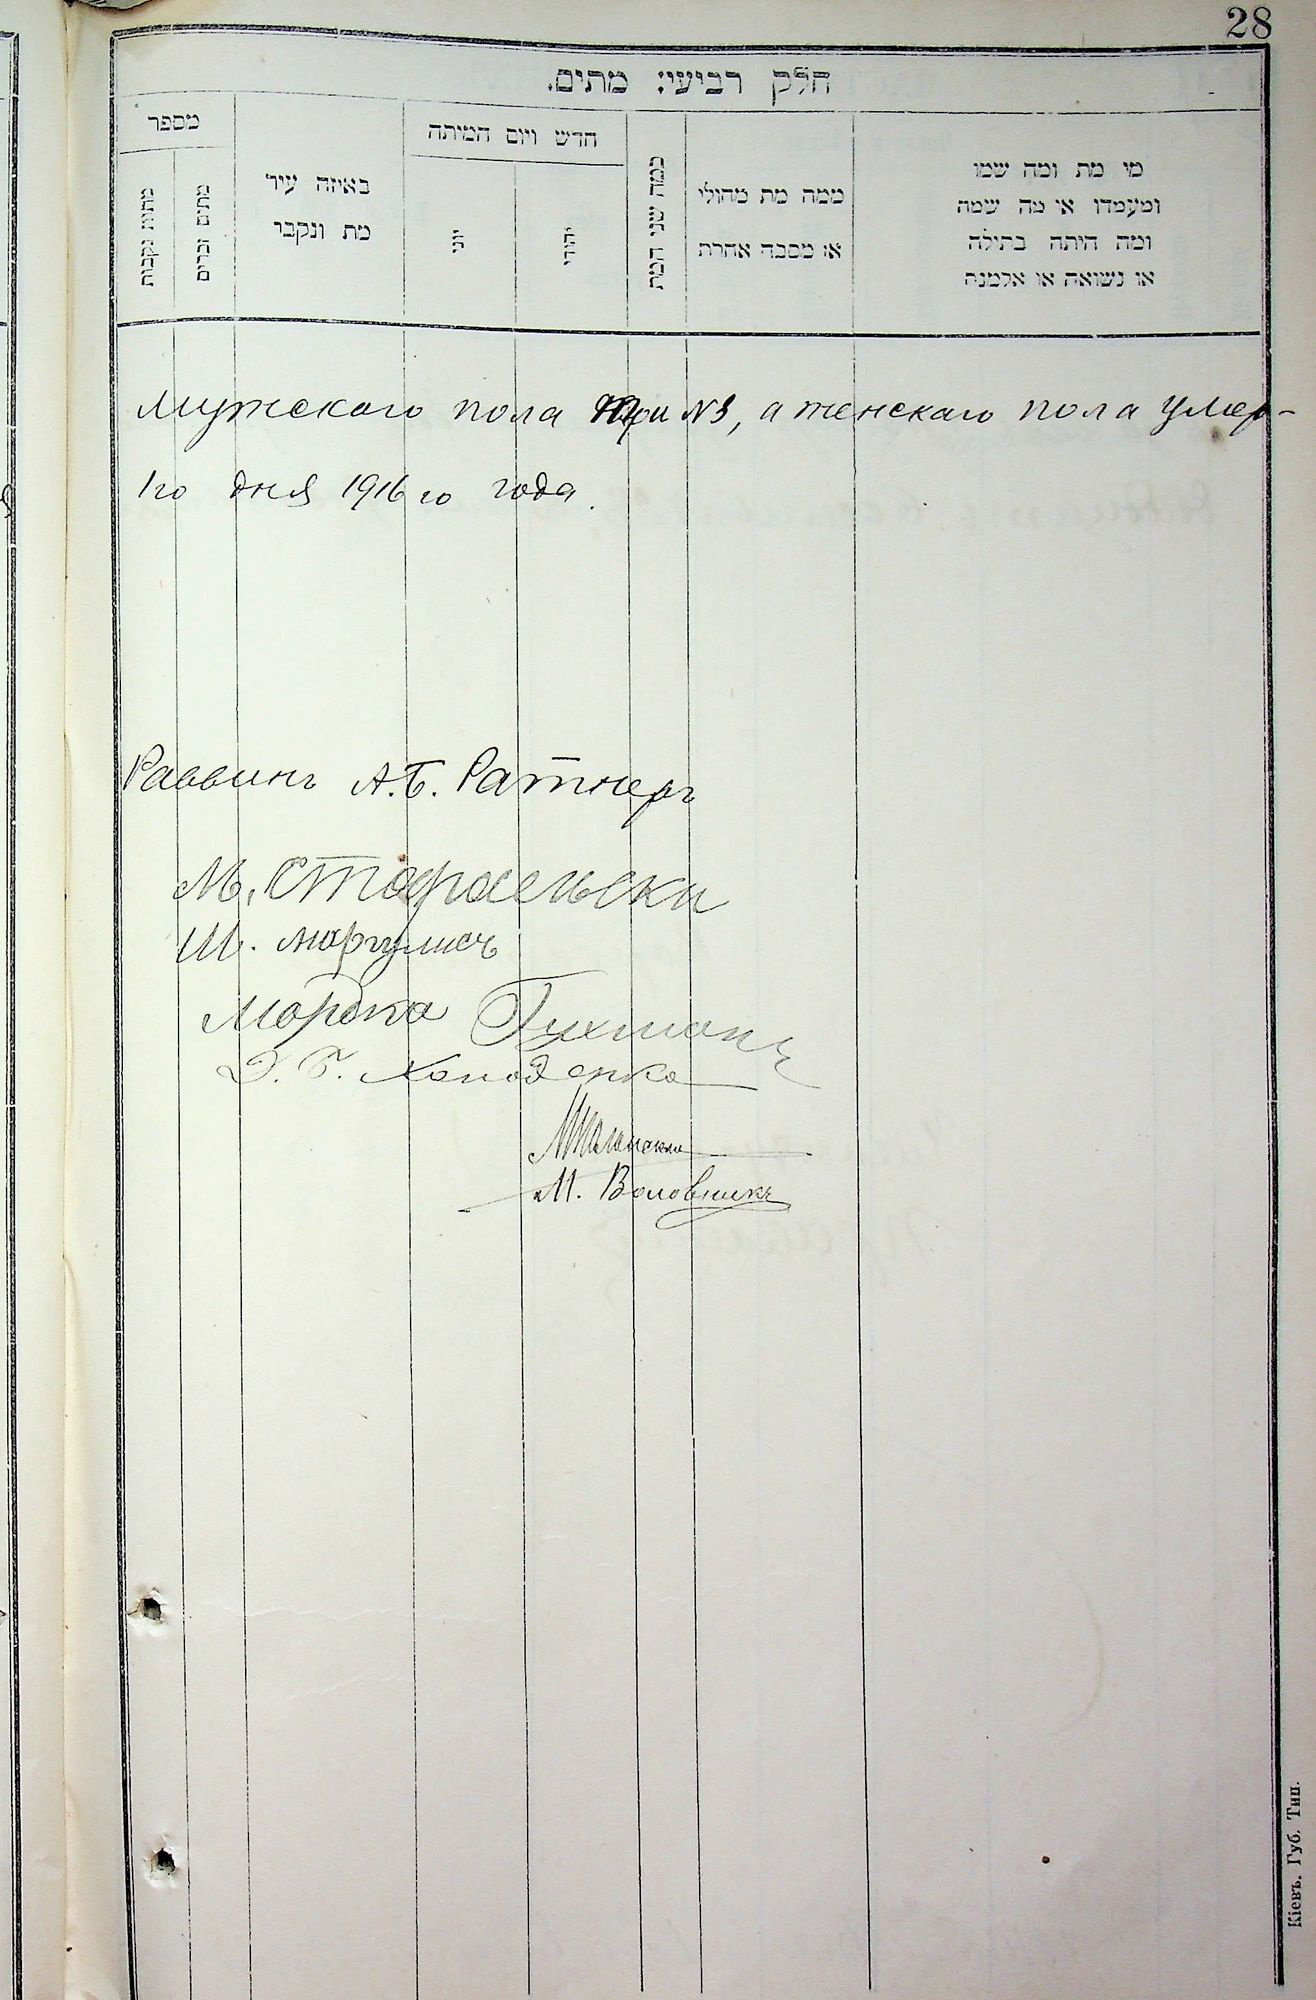 28
חלק רביעי: מתים.
מספר
מתות נקבות
מתים זכרים
באיזה עיר
מת ונקבר
חדש ויום המיתה
יוני
יהודי
כמה שני המת
ממה מת מחולי
או מסבה אחרת
מי מת ומה שמו
ומעמדו או מה שמה
ומה היתה בתולה
או נשואה או אלמנה
мужскаго пола три №3, а женскаго пола умер-
1го дня 1916 го года.
Раввинъ А.Б. Ратнеръ
М. Стараельски
Ш. Маргулисъ
Мордко Гухманъ
Э. Г. Холоденко
М. Воловникъ
Кіевъ. Губ. Тип.